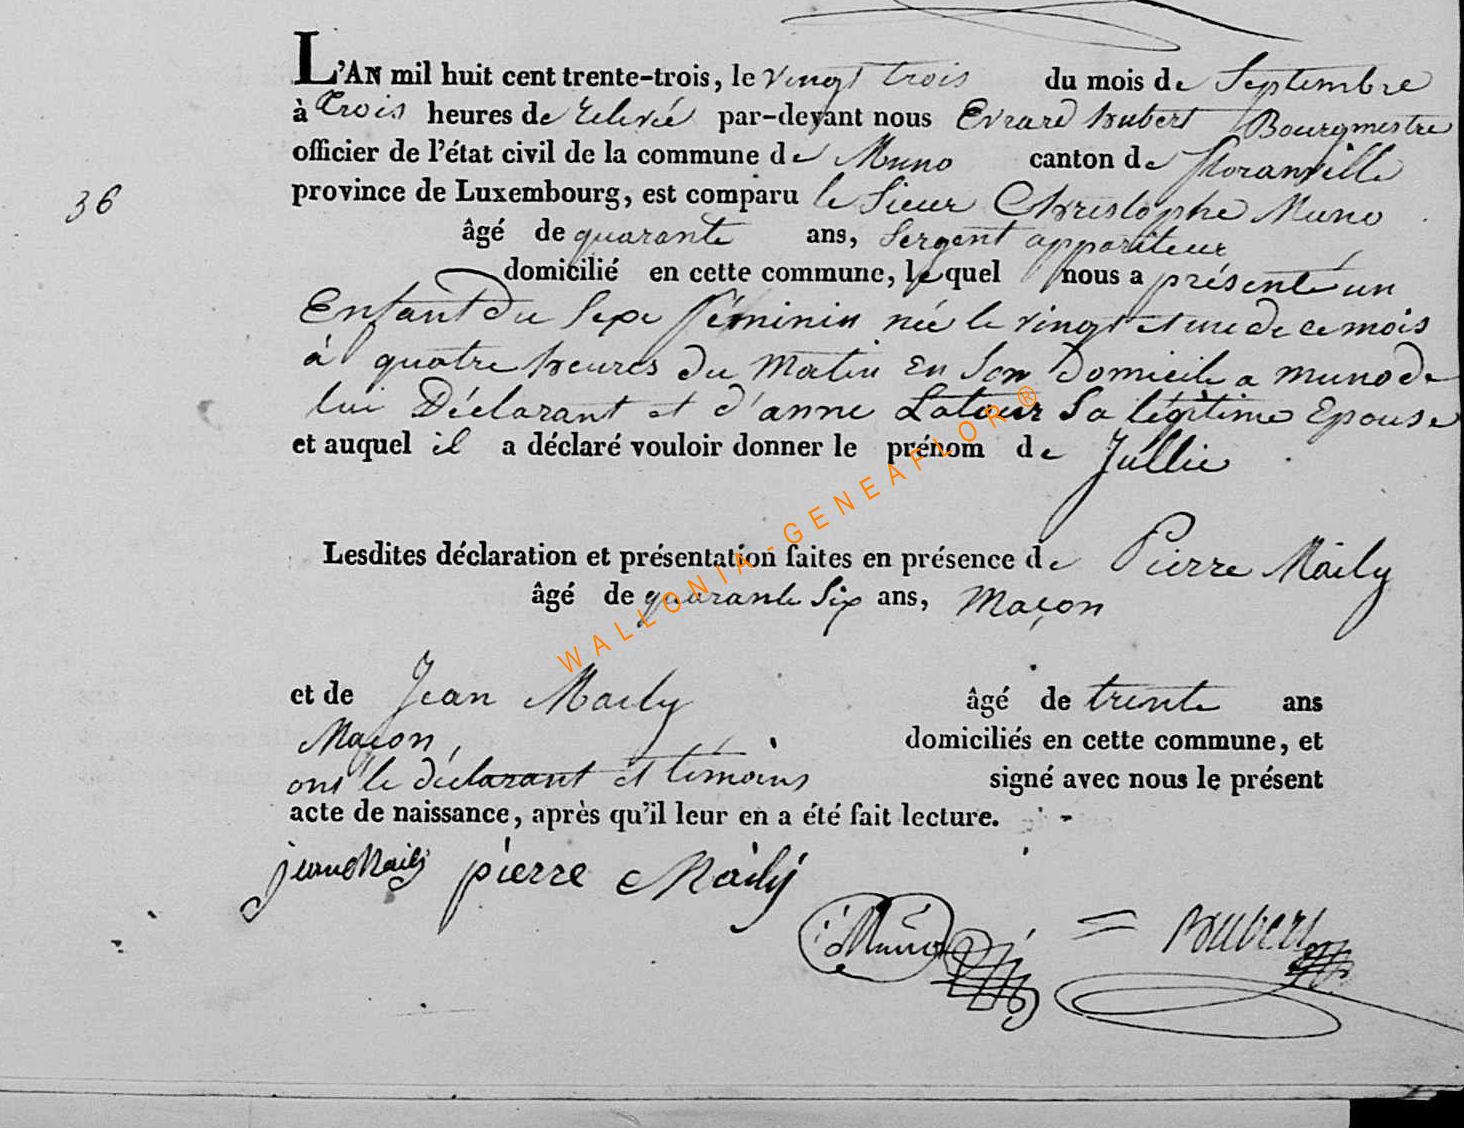 L'AN mil huit cent trente-trois, le vingt trois du mois de Septembre
à trois heures de relevée par-devant nous Evrard hubert Bourgmestre
officier de l'état civil de la commune de Muno canton de floranville
36
province de Luxembourg, est comparu le Sieur Christophe Muno
âgé de quarante ans, Sergent appariteur
domicilié en cette commune, lequel nous a présenté un
Enfant du Sexe féminin née le vingt et une de ce mois
à quatre heures du matin en Son Domicile a muno de
lui Déclarant et d'anne Latour Sa légitime Epouse
et auquel il a déclaré vouloir donner le prénom de Jullie
Lesdites déclaration et présentation faites en présence de Pierre Maily
âgé de quarante Six ans, Maçon
et de Jean Maily âgé de trente ans
Maçon, domiciliés en cette commune, et
ont le déclarant et témoins signé avec nous le présent
acte de naissance, après qu'il leur en a été fait lecture.
jean Maily pierre Maily
Muno hubert
WALLONIA-GENEAFLOR®